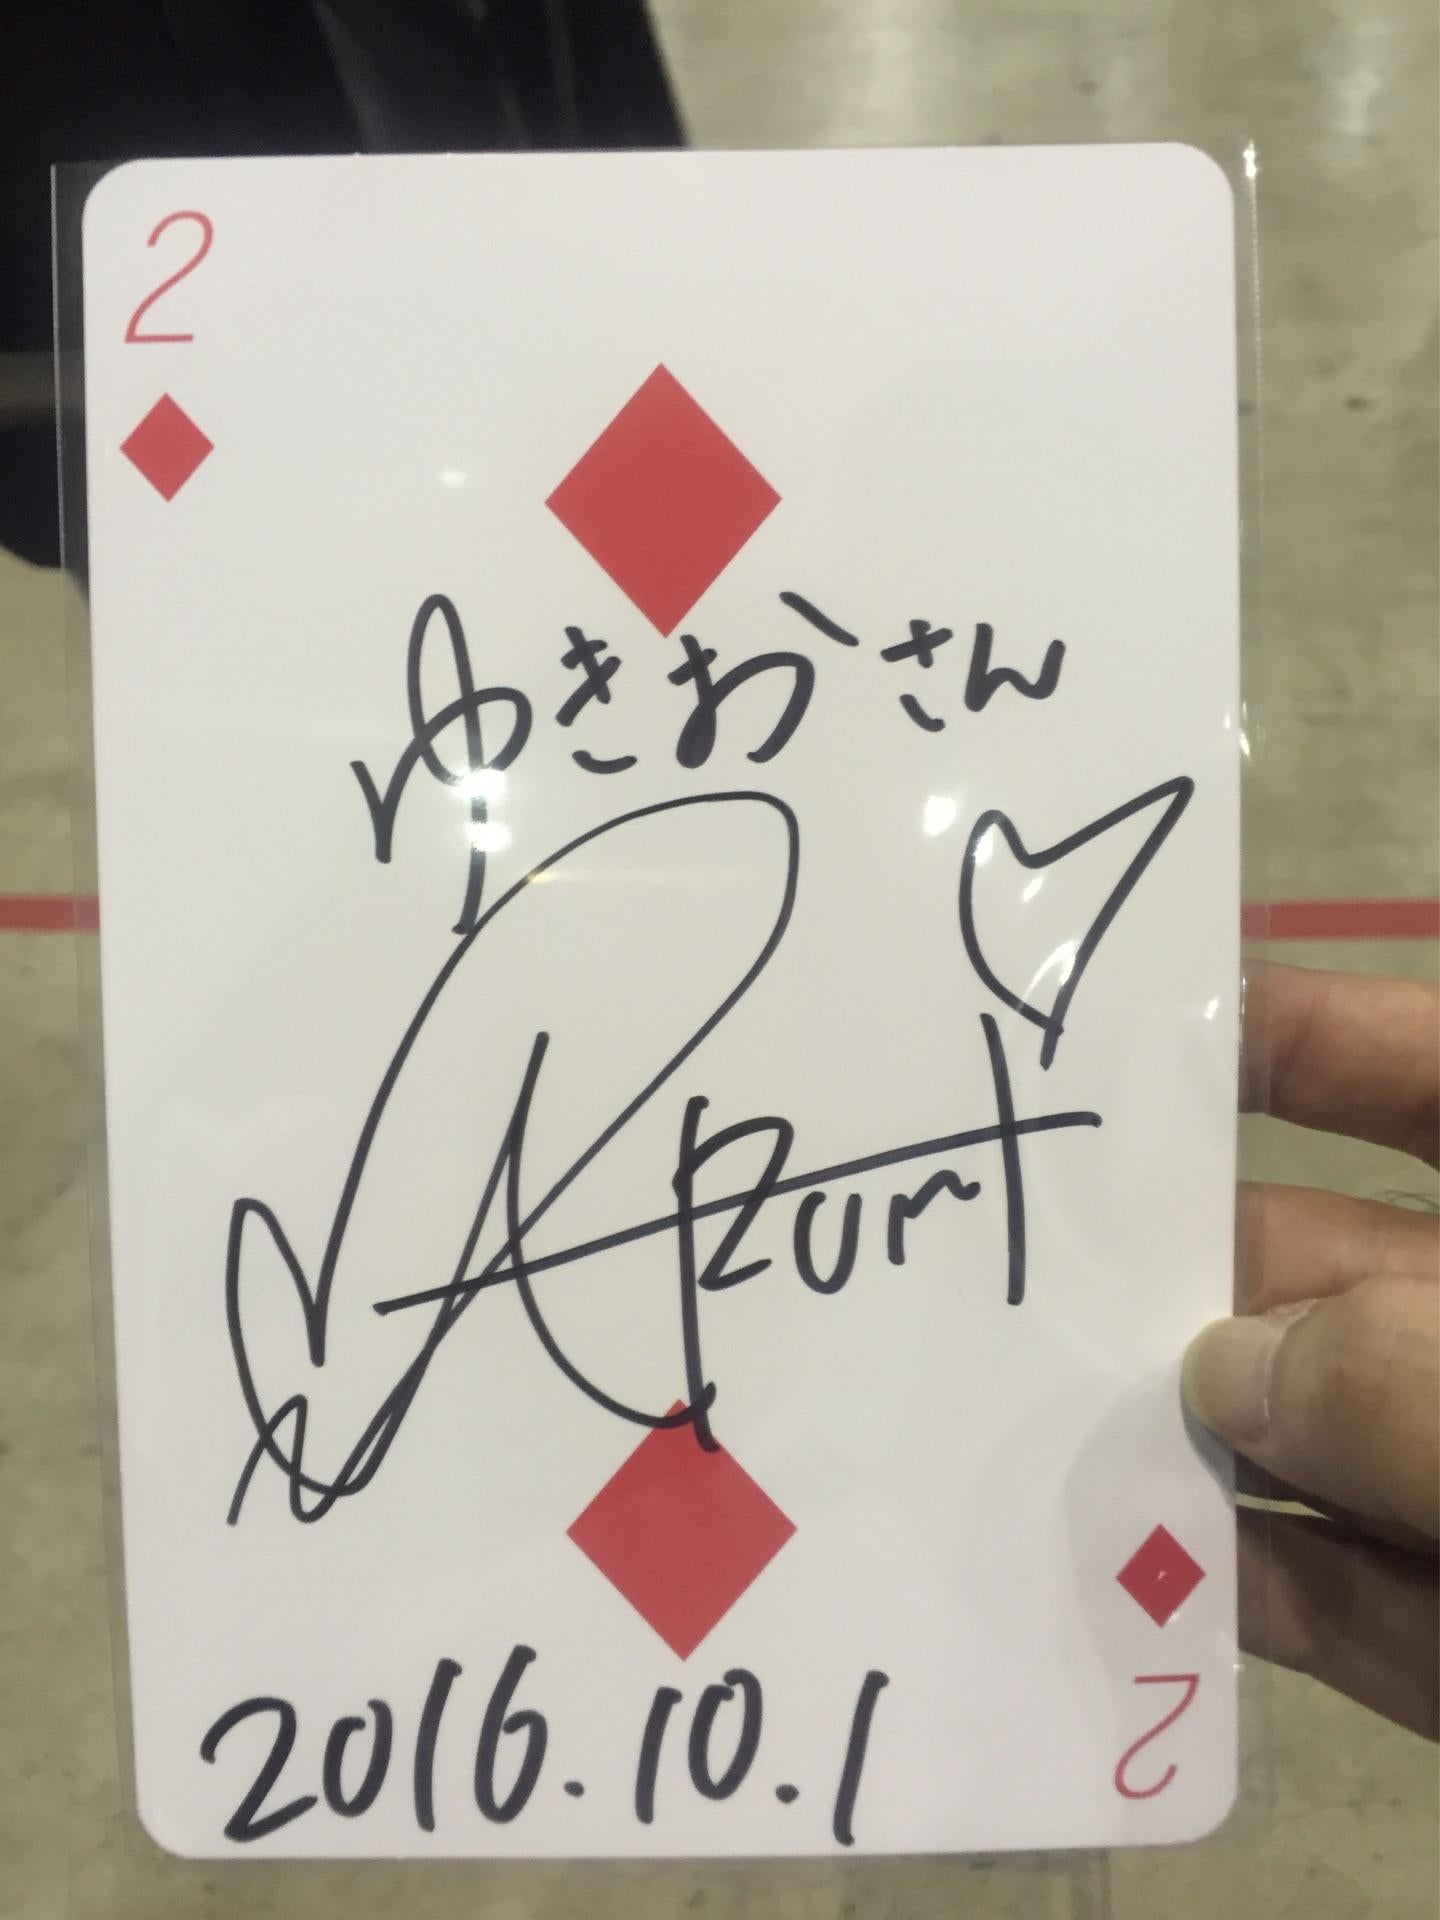 2
ゆきおさん
Azumi
2016.10.1
2